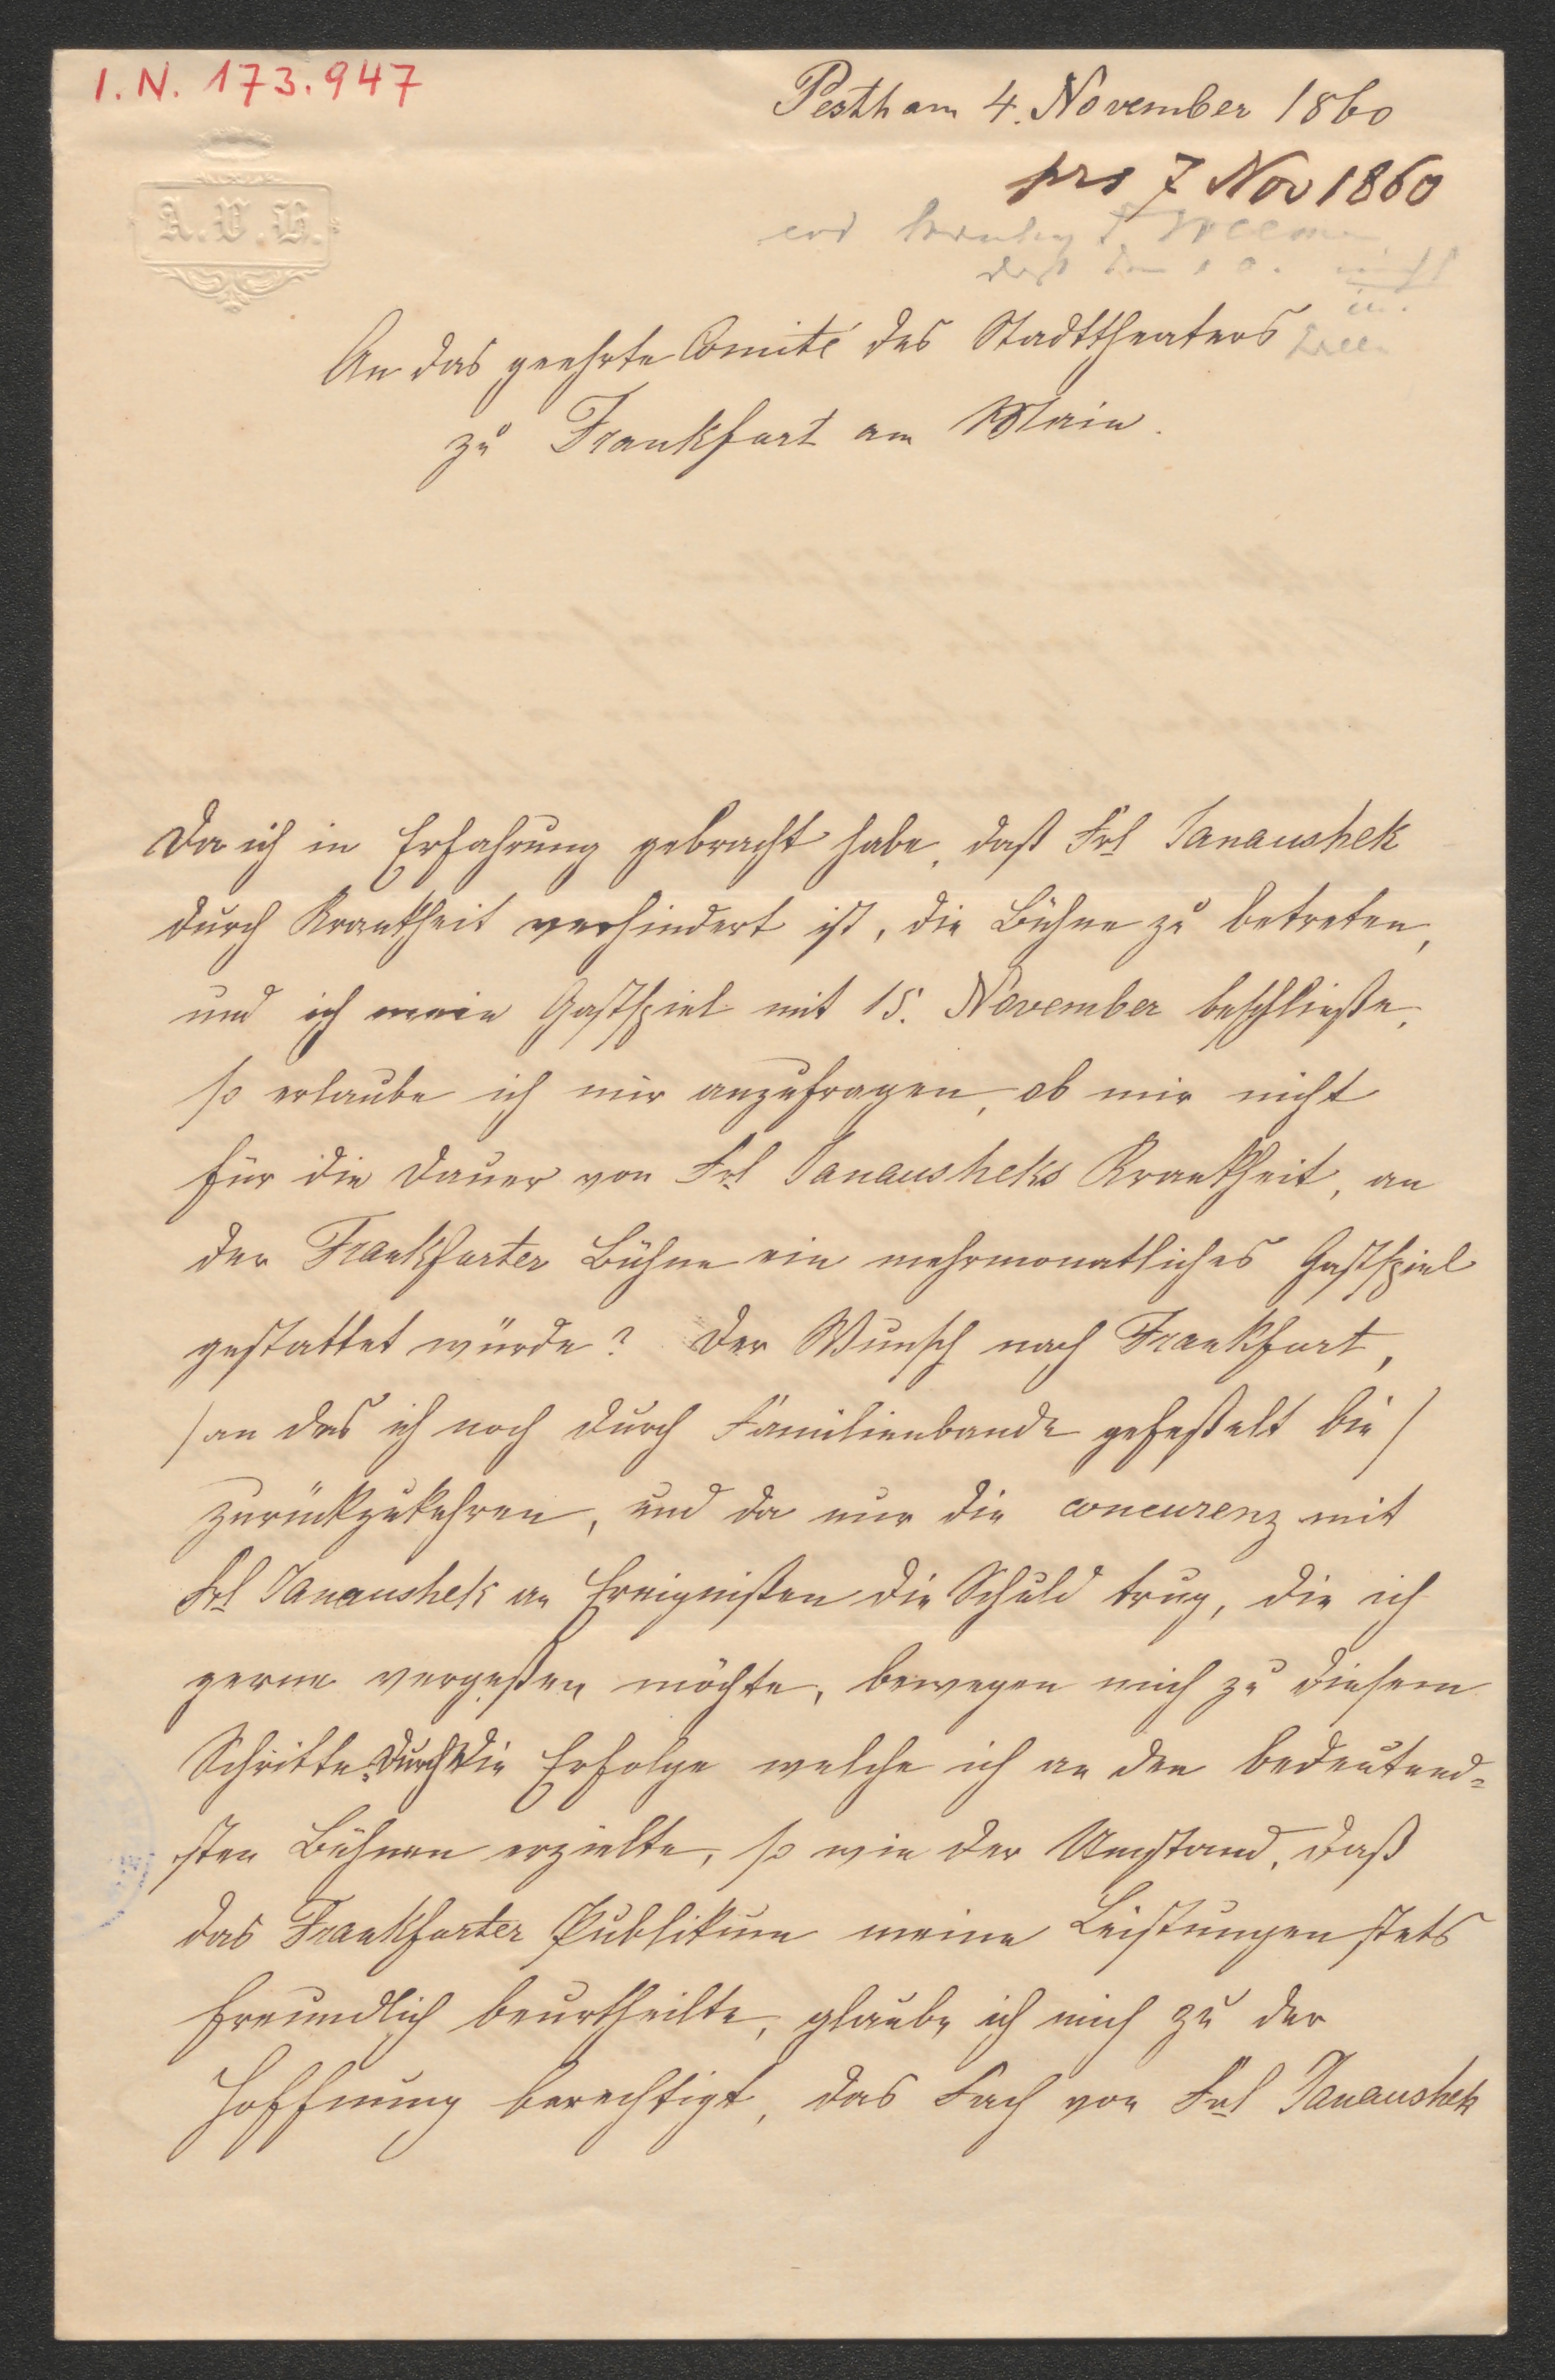 I. N. 173.947
Pesth am 4. November 1860
prs 7 Nov 1860
A. V. B.
An das geehrte Comité des Stadttheaters
zu Frankfurt am Main.
Da ich in Erfahrung gebracht habe, daß Frl Janaushek
durch Krankheit verhindert ist, die Bühne zu betreten,
und ich mein Gastspiel mit 15. November beschließe,
so erlaube ich mir anzufragen, ob mir nicht
für die Dauer von Frl Janausheks Krankheit, an
der Frankfurter Bühne ein mehrmonatliches Gastspiel
gestattet würde? Der Wunsch nach Frankfurt,
/an das ich noch durch Familienbande gefeßelt bin/
zurückzukehren, und da nur die concurenz mit
Frl Janaushek an Ereignißen die Schuld trug, die ich
gerne vergeßen möchte, bewegen mich zu diesem
Schritte. Durch die Erfolge welche ich an den bedeutend=
sten Bühnen erzielte, so wie der Umstand, daß
das Frankfurter Publikum meine Leistungen stets
freundlich beurtheilte, glaube ich mich zu der
Hoffnung berechtigt, das Fach von Frl Janaushek